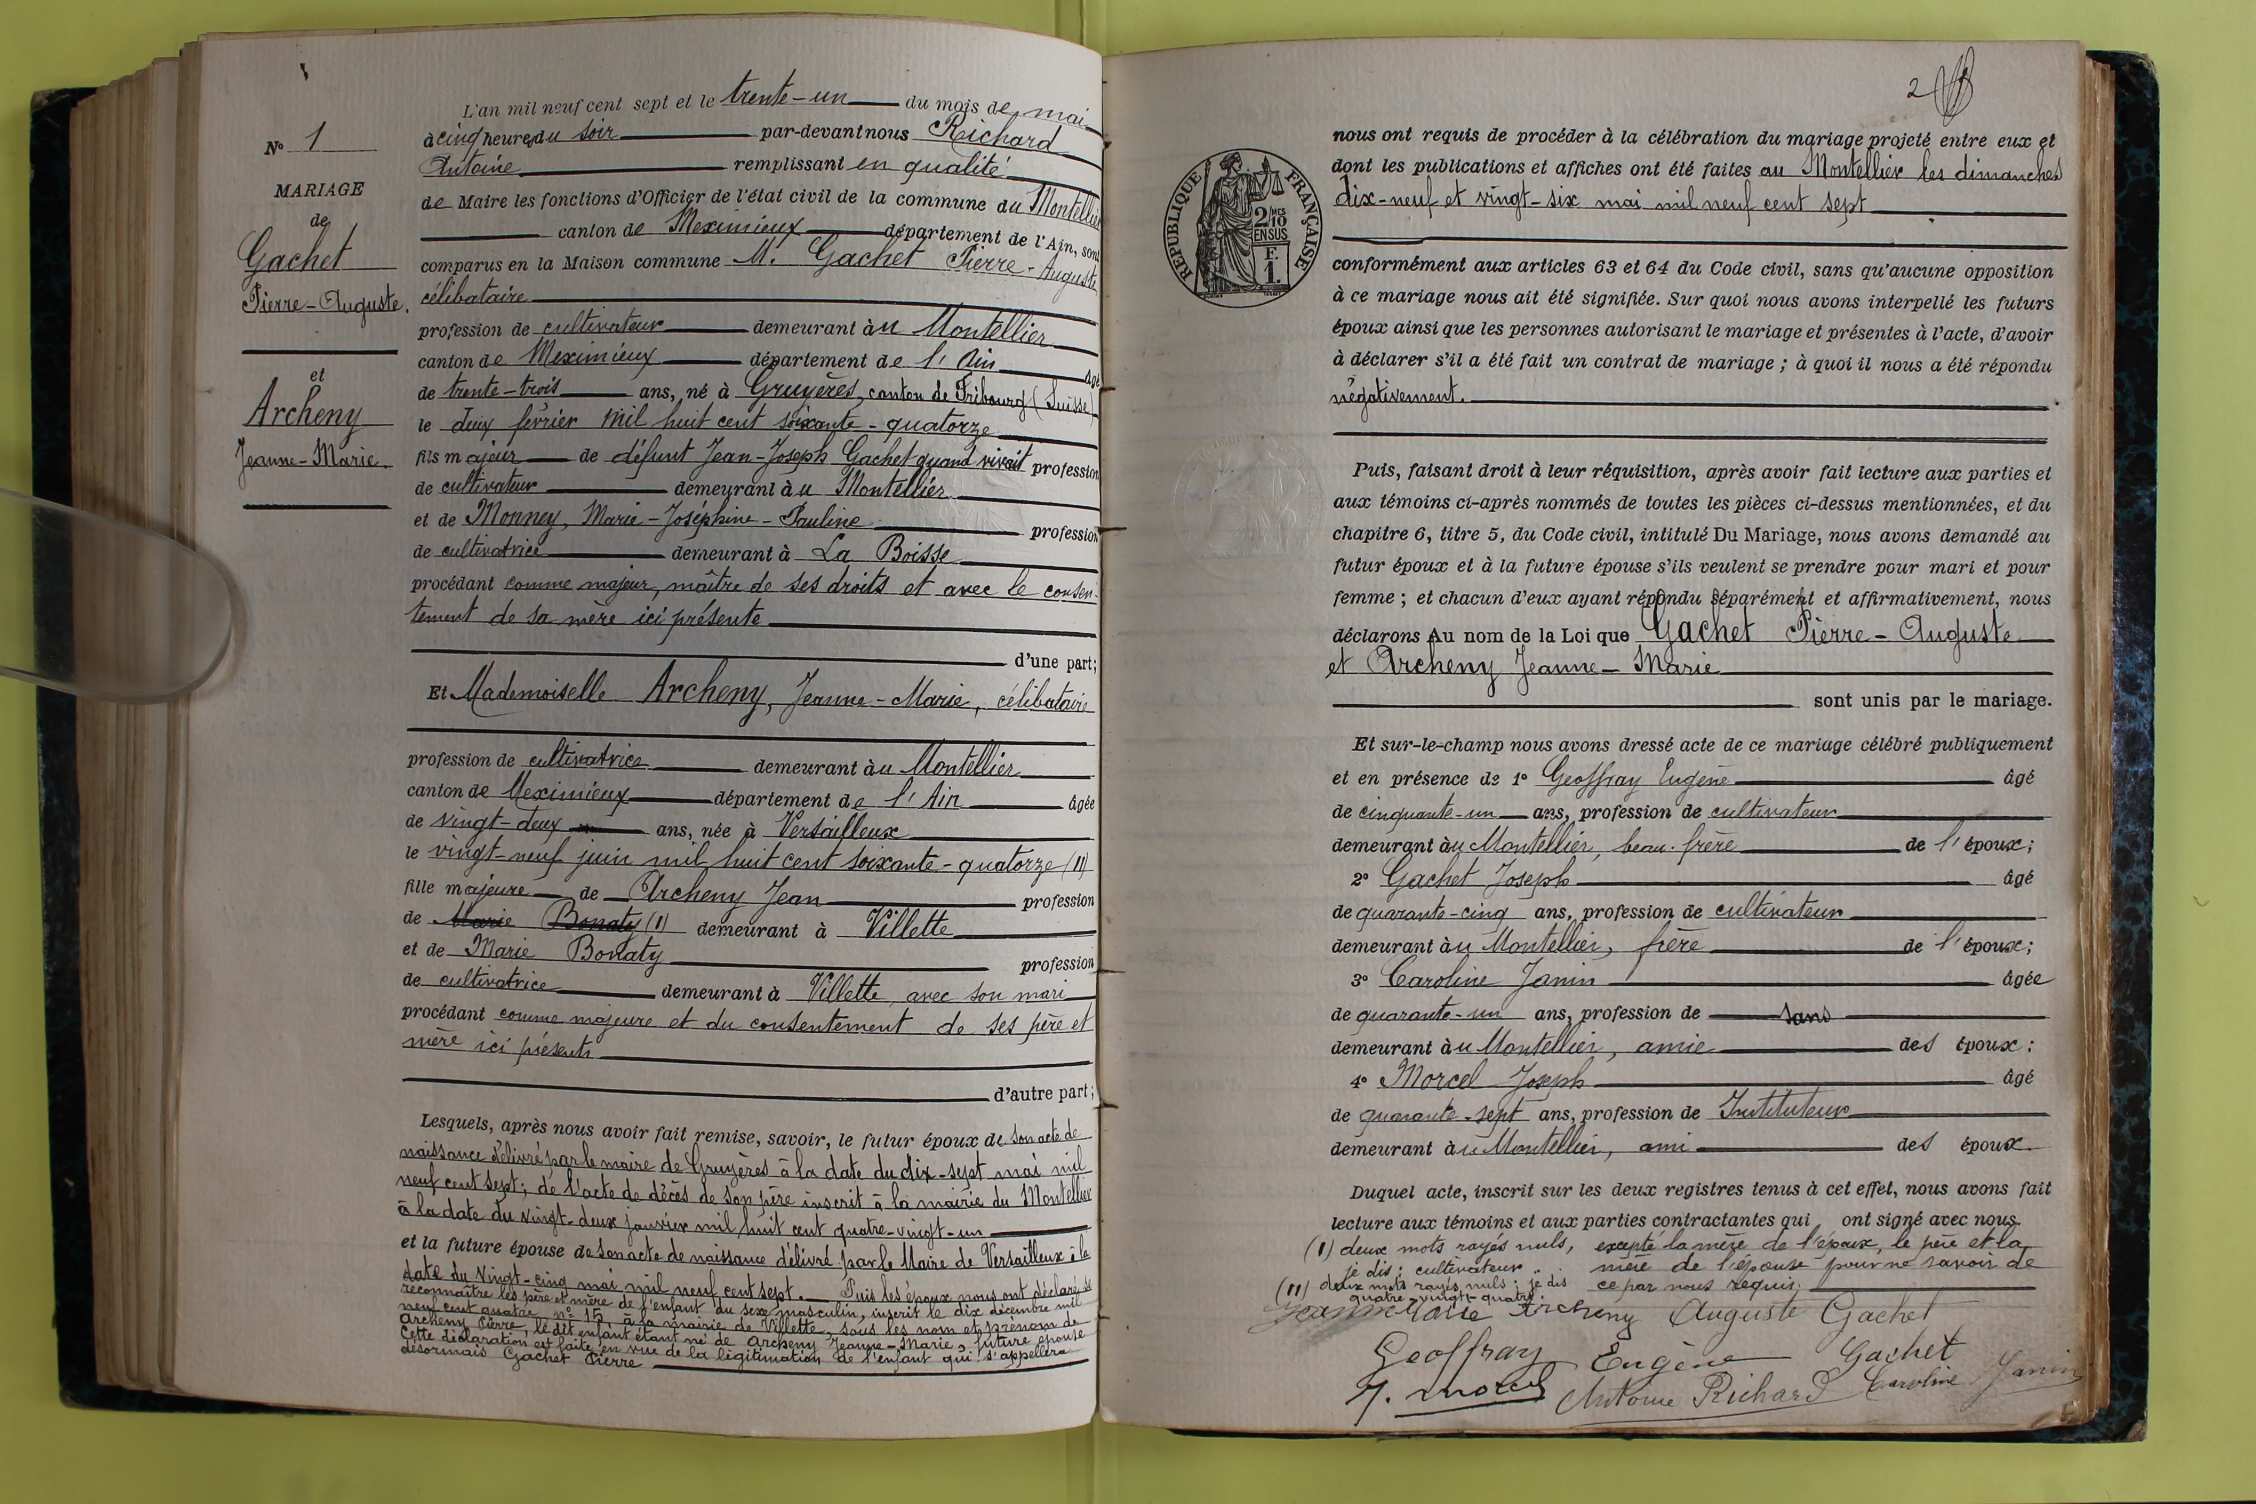 N° 1
MARIAGE
de
Gachet
Pierre-Auguste.
et
Archeny
Jeanne-Marie.
L'an mil neuf cent sept et le trente-un du mois de mai
à cinq heures du soir par-devant nous Richard
Antoine remplissant en qualité
de Maire les fonctions d'Officier de l'état civil de la commune du Montellier
canton de Meximieux département de l'Ain, sont
comparus en la Maison commune M. Gachet Pierre-Auguste,
célibataire
profession de cultivateur demeurant au Montellier
canton de Meximieux département de l'Ain âgé
de trente-trois ans, né à Gruyères, canton de Fribourg (Suisse)
le deux février mil huit cent soixante-quatorze
fils majeur de défunt Jean-Joseph Gachet quand vivait profession
de cultivateur demeurant au Montellier
et de Monney, Marie-Joséphine-Pauline profession
de cultivatrice demeurant à La Boisse
procédant comme majeur, maître de ses droits et avec le consen-
tement de sa mère ici présente
d'une part;
Et Mademoiselle Archeny, Jeanne-Marie, célibataire
profession de cultivatrice demeurant au Montellier
canton de Meximieux département de l'Ain âgée
de vingt-deux ans, née à Versailleux
le vingt-neuf juin mil huit cent soixante-quatorze (II)
fille majeure de Archeny Jean profession
de Marie Bonaty (I) demeurant à Villette
et de Marie Bonaty profession
de cultivatrice demeurant à Villette avec son mari
procédant comme majeure et du consentement de ses père et
mère ici présents
d'autre part;
Lesquels, après nous avoir fait remise, savoir, le futur époux de son acte de
naissance délivré par le maire de Gruyères à la date du dix-sept mai mil
neuf cent sept; de l'acte de décès de son père inscrit à la mairie du Montellier
à la date du vingt-deux janvier mil huit cent quatre-vingt-un
et la future épouse de son acte de naissance délivré par le Maire de Versailleux à la
date du vingt-cinq mai mil neuf cent sept. Puis les époux nous ont déclaré se
reconnaître les père et mère de l'enfant du sexe masculin, inscrit le dix décembre mil
neuf cent quatre n° 15, à la mairie de Villette, sous les nom et prénom de
Archeny Pierre, le dit enfant étant né de Archeny Jeanne-Marie, future épouse
Cette déclaration est faite en vue de la légitimation de l'enfant qui s'appellera
désormais Gachet Pierre
2
RÉPUBLIQUE FRANÇAISE
2/10 MES
EN SUS
F.
1.
nous ont requis de procéder à la célébration du mariage projeté entre eux et
dont les publications et affiches ont été faites au Montellier les dimanches
dix-neuf et vingt-six mai mil neuf cent sept
conformément aux articles 63 et 64 du Code civil, sans qu'aucune opposition
à ce mariage nous ait été signifiée. Sur quoi nous avons interpellé les futurs
époux ainsi que les personnes autorisant le mariage et présentes à l'acte, d'avoir
à déclarer s'il a été fait un contrat de mariage; à quoi il nous a été répondu
négativement.
Puis, faisant droit à leur réquisition, après avoir fait lecture aux parties et
aux témoins ci-après nommés de toutes les pièces ci-dessus mentionnées, et du
chapitre 6, titre 5, du Code civil, intitulé Du Mariage, nous avons demandé au
futur époux et à la future épouse s'ils veulent se prendre pour mari et pour
femme; et chacun d'eux ayant répondu séparément et affirmativement, nous
déclarons Au nom de la Loi que Gachet Pierre-Auguste
et Archeny Jeanne-Marie
sont unis par le mariage.
Et sur-le-champ nous avons dressé acte de ce mariage célébré publiquement
et en présence de 1° Geoffray Eugène âgé
de cinquante-un ans, profession de cultivateur
demeurant au Montellier, beau-frère de l'époux;
2° Gachet Joseph âgé
de quarante-cinq ans, profession de cultivateur
demeurant au Montellier, frère de l'époux;
3° Caroline Janin âgée
de quarante-un ans, profession de sans
demeurant au Montellier, amie des époux;
4° Morcel Joseph âgé
de quarante-sept ans, profession de Instituteur
demeurant au Montellier, ami des époux.
Duquel acte, inscrit sur les deux registres tenus à cet effet, nous avons fait
lecture aux témoins et aux parties contractantes qui ont signé avec nous
(I) deux mots rayés nuls, excepté la mère de l'époux, le père et la
je dis: cultivateur mère de l'épouse pour ne savoir de
(II) deux mots rayés nuls: je dis ce par nous requis.
quatre-vingt-quatre.
Jeanne Marie Archeny Auguste Gachet
Geoffray Eugène Gachet
J. Morcel Antoine Richard Caroline Janin